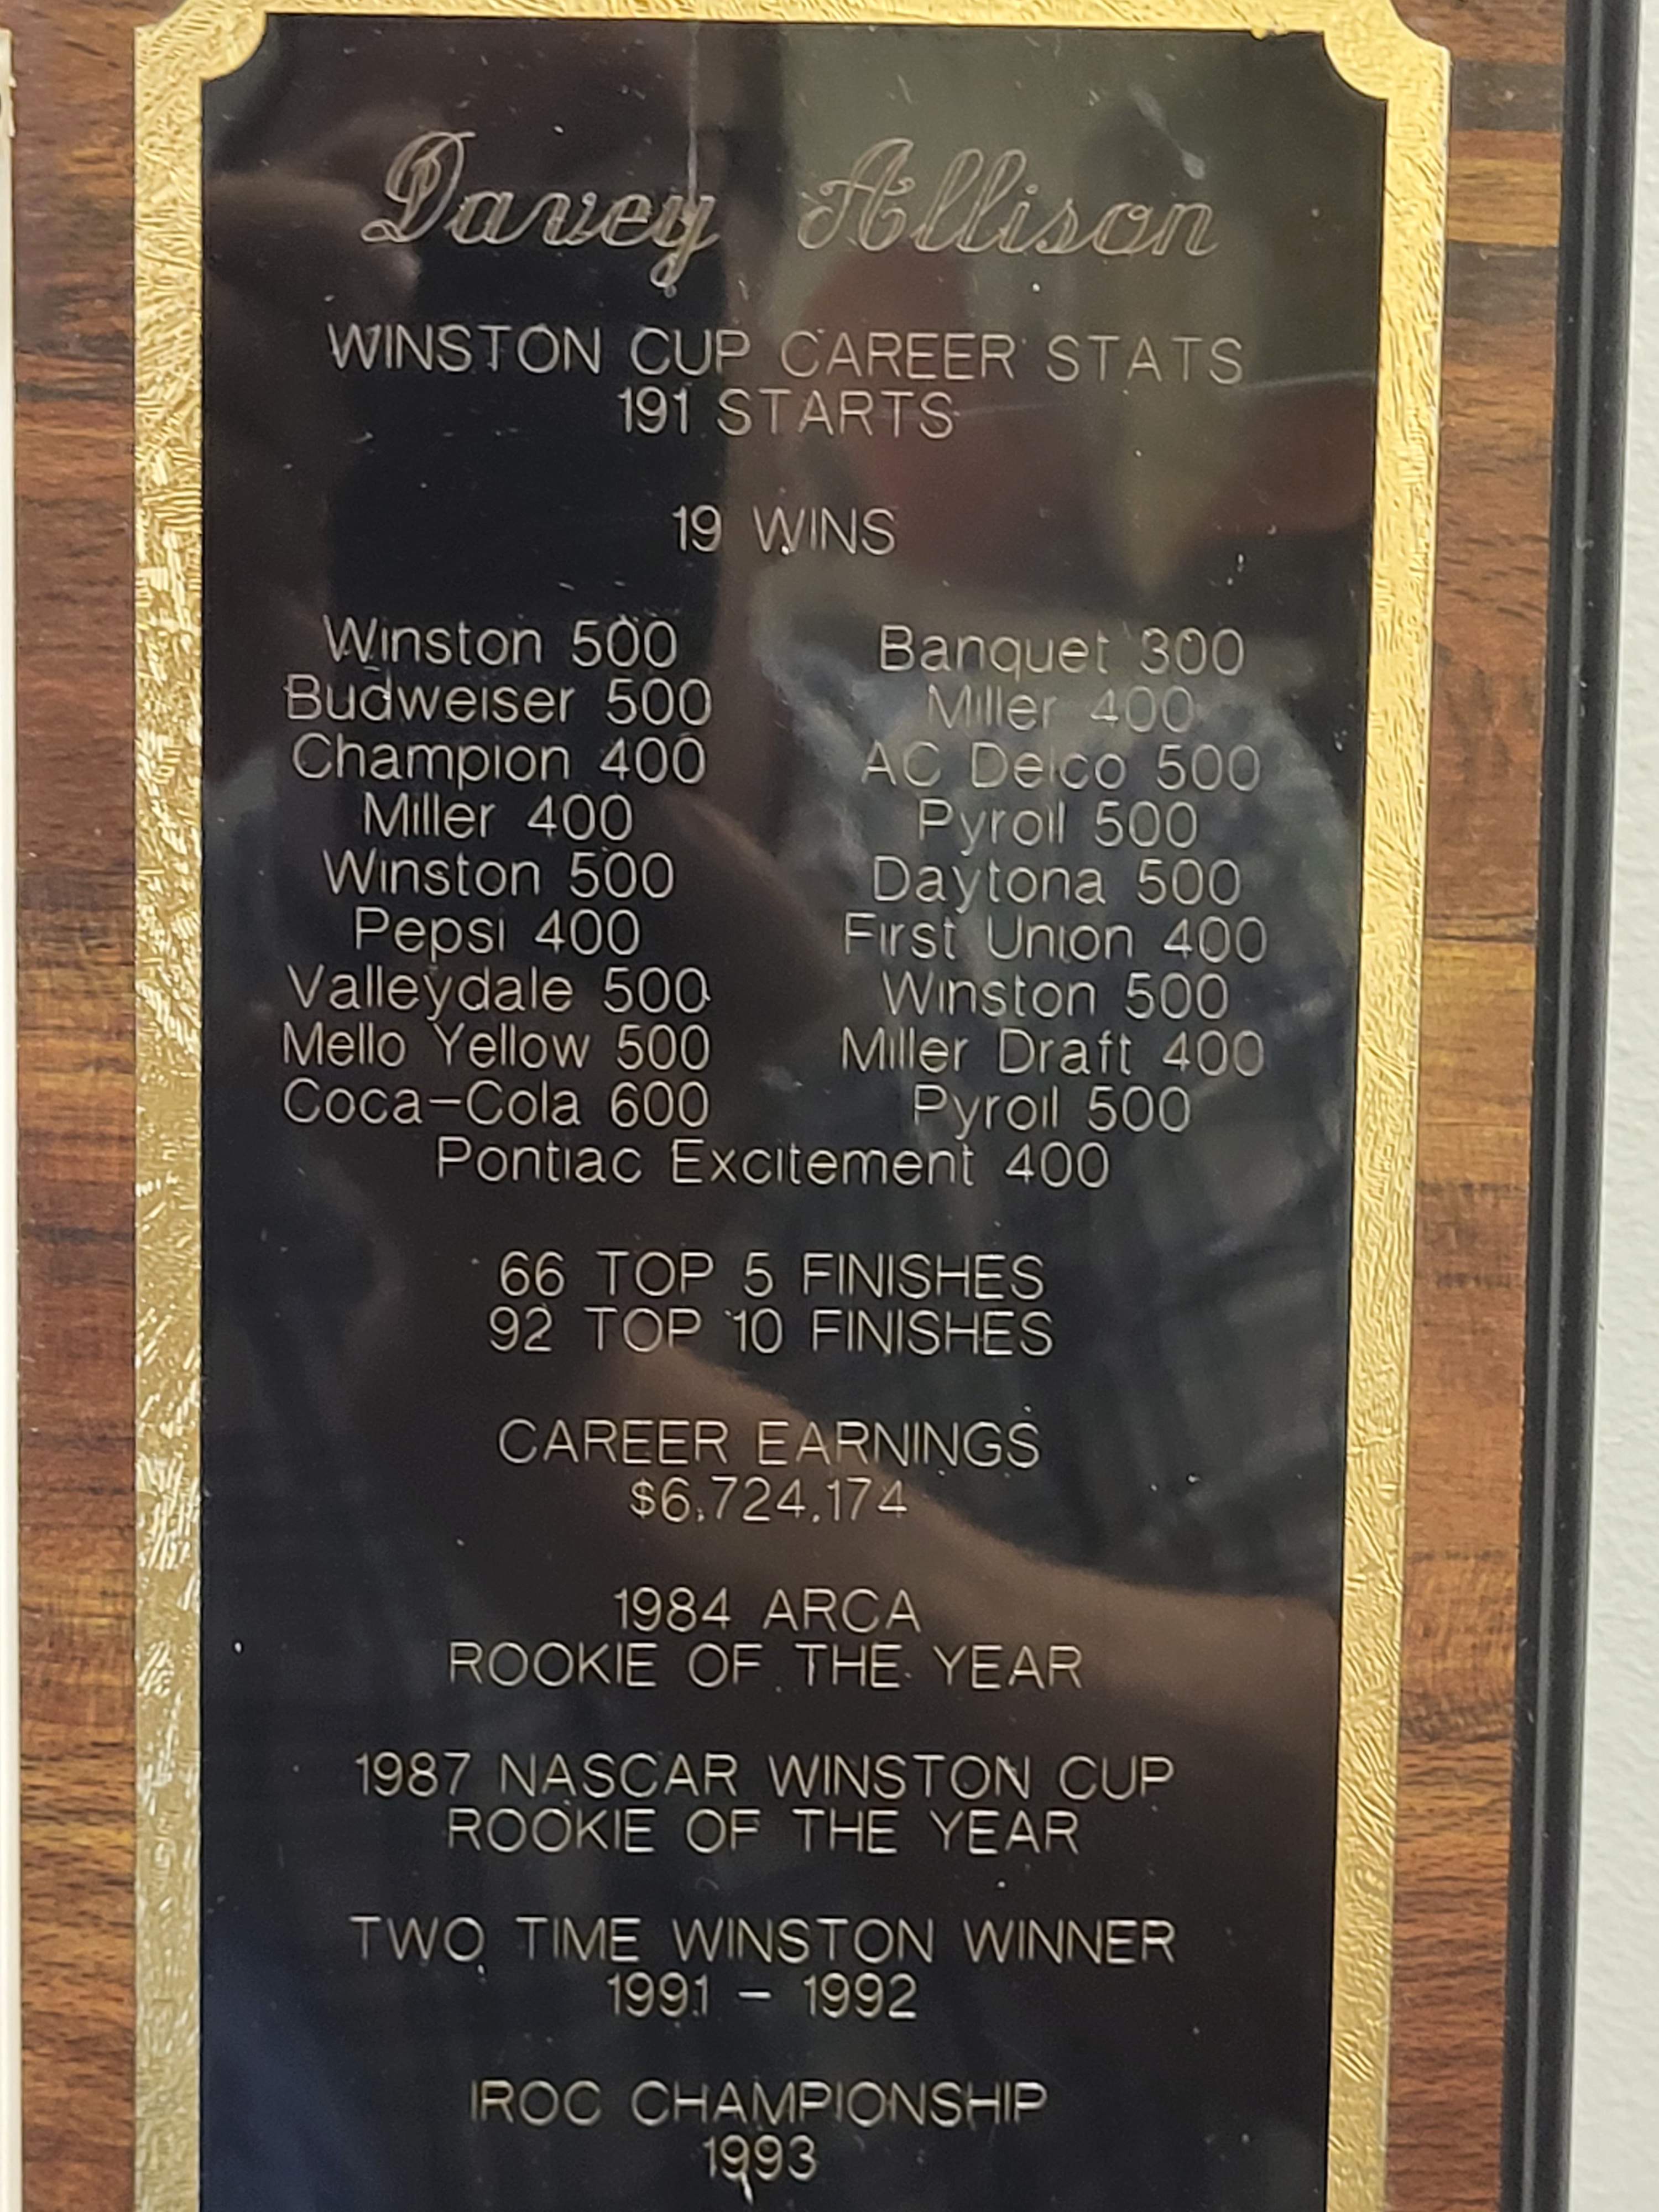 Davey Allison
WINSTON CUP CAREER STATS
191 STARTS
19 WINS
Winston 500
Budweiser 500
Champion 400
Miller 400
Winston 500
Pepsi 400
Valleydale 500
Mello Yellow 500
Coca-Cola 600
Banquet 300
Miller 400
AC Delco 500
Pyroil 500
Daytona 500
First Union 400
Winston 500
Miller Draft 400
Pyroil 500
Pontiac Excitement 400
66 TOP 5 FINISHES
92 TOP 10 FINISHES
CAREER EARNINGS
$6,724,174
1984 ARCA
ROOKIE OF THE YEAR
1987 NASCAR WINSTON CUP
ROOKIE OF THE YEAR
TWO TIME WINSTON WINNER
1991 - 1992
IROC CHAMPIONSHIP
1993